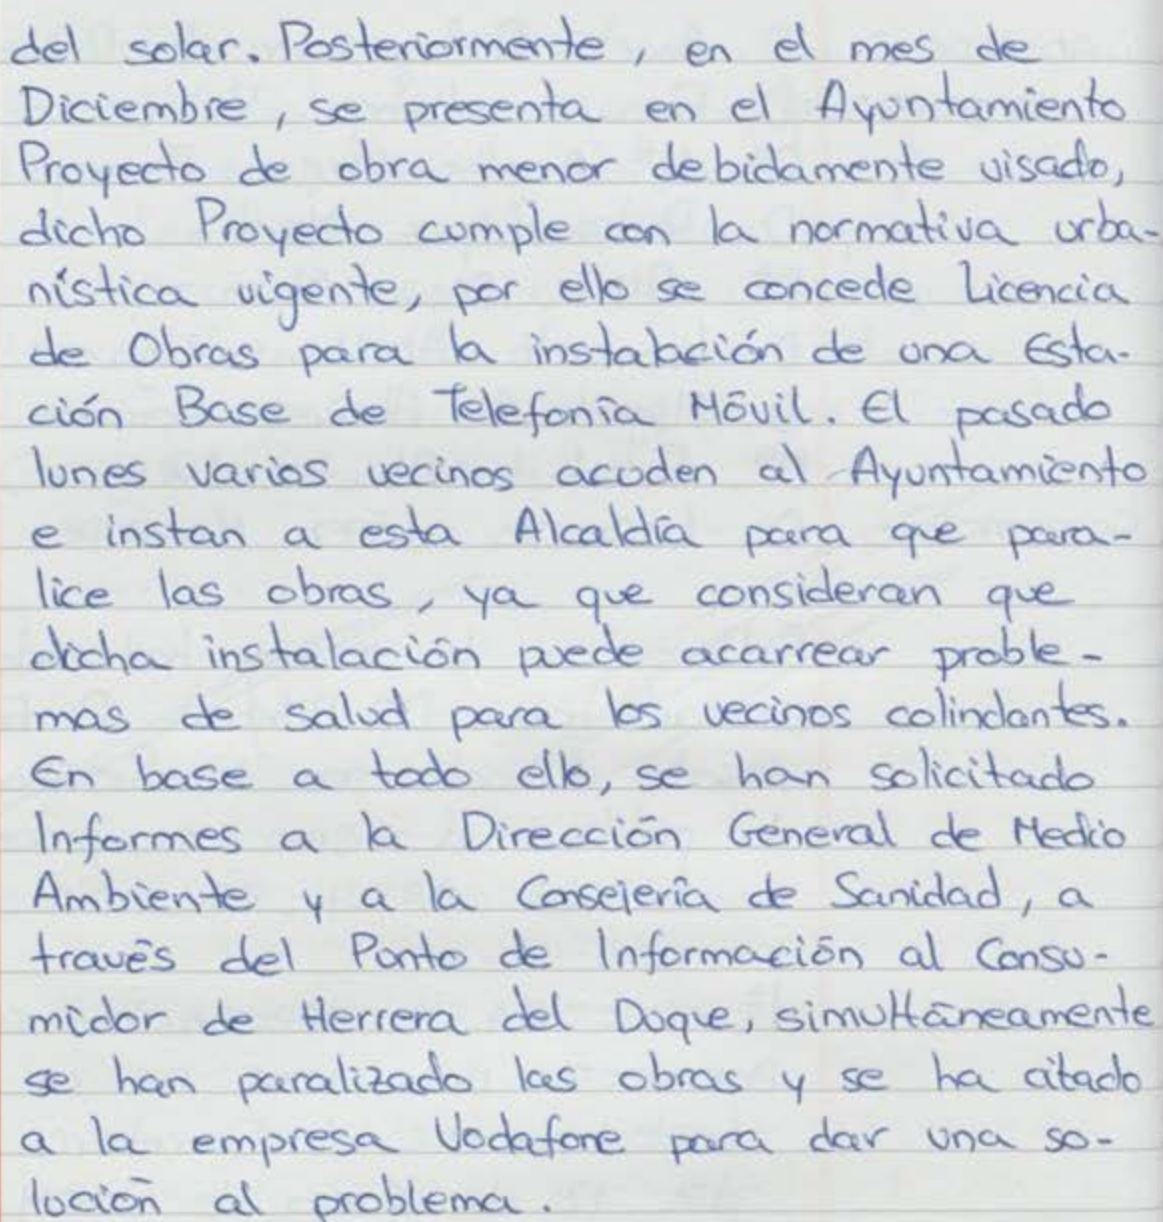 del solar. Posteriormente, en el mes de
Diciembre, se presenta en el Ayuntamiento
Proyecto de obra menor debidamente visado,
dicho Proyecto cumple con la normativa urba-
nística vigente, por ello se concede Licencia
de Obras para la instalación de una Esta-
ción Base de Telefonía Móvil. El pasado
lunes varios vecinos acuden al Ayuntamiento
e instan a esta Alcaldía para que para-
lice las obras, ya que consideran que
dicha instalación puede acarrear proble-
mas de salud para los vecinos colindantes.
En base a todo ello, se han solicitado
Informes a la Dirección General de Medio
Ambiente y a la Consejería de Sanidad, a
través del Punto de Información al Consu-
midor de Herrera del Duque, simultáneamente
se han paralizado las obras y se ha citado
a la empresa Vodafone para dar una so-
lución al problema.